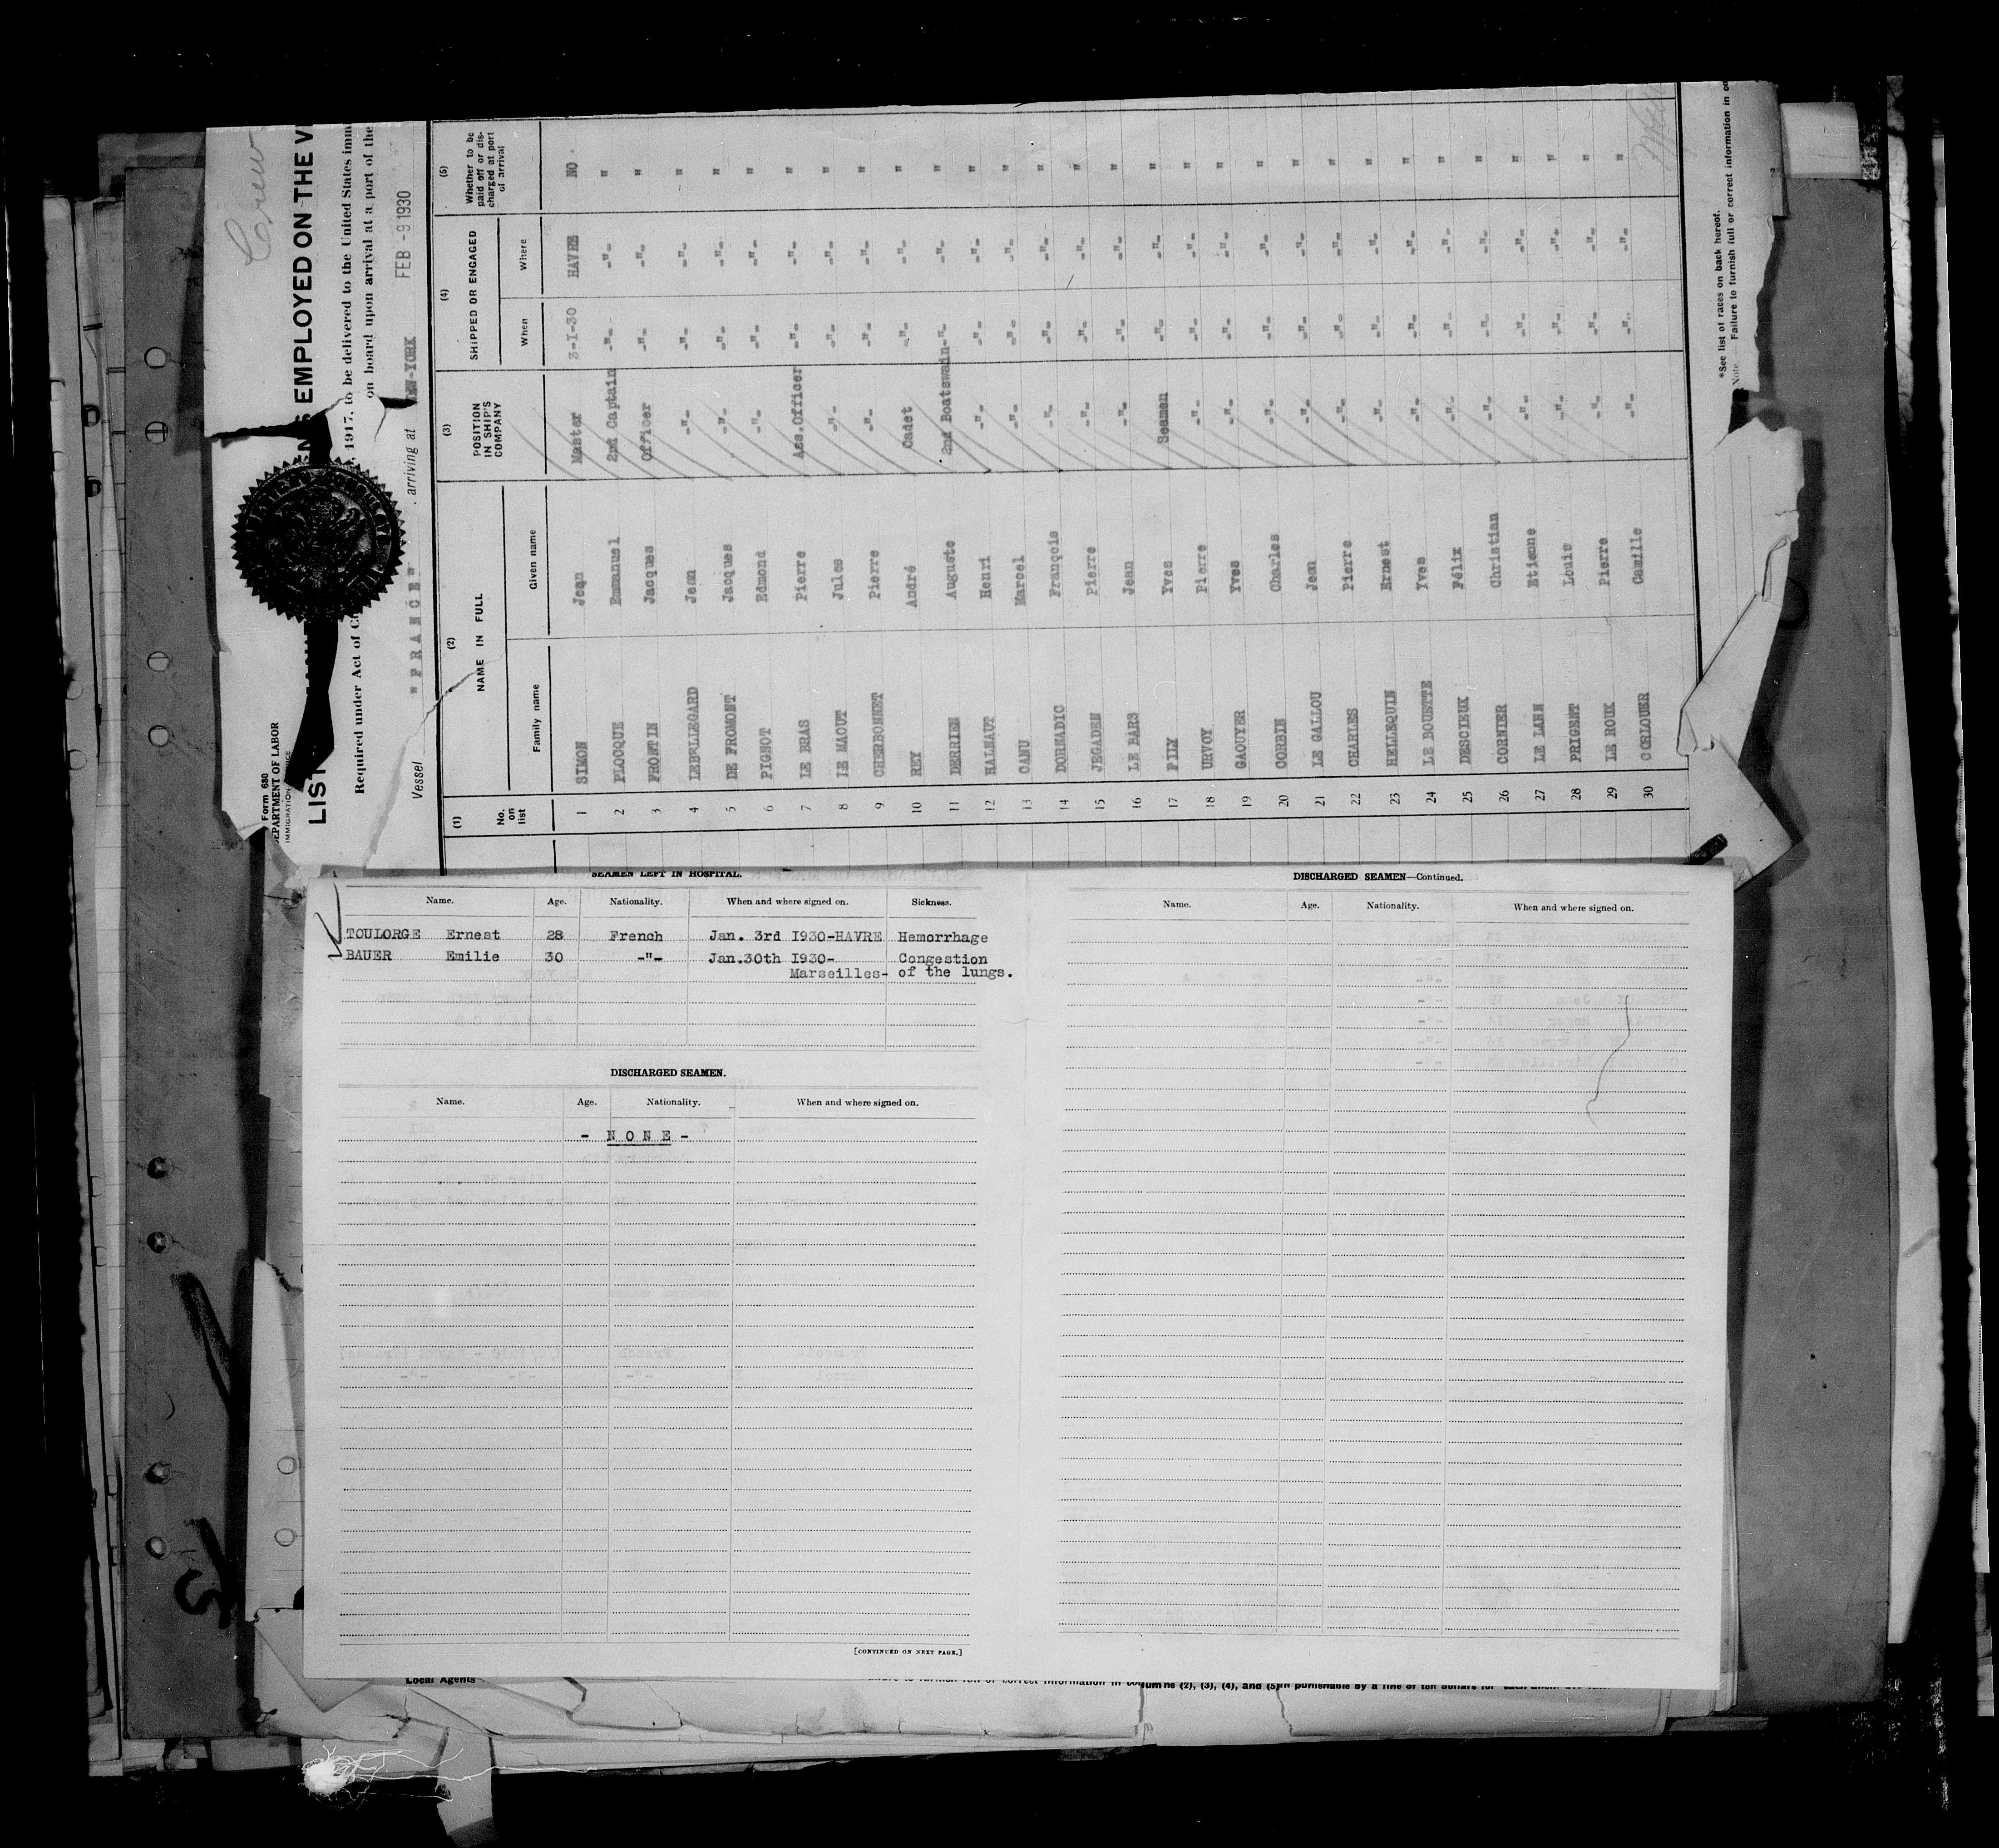 Crew
Form 680
DEPARTMENT OF LABOR
IMMIGRATION
LIST
EMPLOYED ON THE V
Required under Act of
1917, to be delivered to the United States imm
on board upon arrival at a port of the
Vessel "FRANCE" , arriving at NEW-YORK FEB -9 1930
(1) (2) (3) (4) (5)
No. on list NAME IN FULL POSITION IN SHIP'S COMPANY SHIPPED OR ENGAGED Whether to be paid off or dis-charged at port of arrival
Family name Given name When Where
1 SIMON Jean Master 3-I-30 HAVRE NO
2 PLOCQUE Emmanuel 2nd Captain -"- -"- "
3 FRONTIN Jacques Officer -"- -"- "
4 LEBELLEGARD Jean -"- -"- -"- "
5 DE FROMONT Jacques -"- -"- -"- "
6 PIGNOT Edmond -"- -"- -"- "
7 LE BRAS Pierre Ass.Officer -"- -"- "
8 LE MAOUT Jules -"- -"- -"- "
9 CHERBONNET Pierre -"- -"- -"- "
10 REY André Cadet -"- -"- "
11 DERRIEN Auguste 2nd Boatswain -"- -"- "
12 HALNAUT Henri -"- -"- -"- "
13 CANU Marcel -"- -"- -"- "
14 DORNADIC François -"- -"- -"- "
15 JEGADEN Pierre -"- -"- -"- "
16 LE BARS Jean -"- -"- -"- "
17 FILY Yves Seaman -"- -"- "
18 URVOY Pierre -"- -"- -"- "
19 GAOUYER Yves -"- -"- -"- "
20 CORBIN Charles -"- -"- -"- "
21 LE GALLOU Jean -"- -"- -"- "
22 CHARLES Pierre -"- -"- -"- "
23 HELLEQUIN Ernest -"- -"- -"- "
24 LE BOUETTE Yves -"- -"- -"- "
25 DESCIEUX Félix -"- -"- -"- "
26 CORNIER Christian -"- -"- -"- "
27 LE LANN Etienne -"- -"- -"- "
28 PRIGENT Louis -"- -"- -"- "
29 LE ROUX Pierre -"- -"- -"- "
30 CORLOUER Camille -"- -"- -"- "
*See list of races on back hereof.
Note.— Failure to furnish full or correct information in co
SEAMEN LEFT IN HOSPITAL.
Name. Age. Nationality. When and where signed on. Sickness.
TOULORGE Ernest 28 French Jan. 3rd I930-HAVRE Hemorrhage
BAUER Emilie 30 -"- Jan.30th I930- Congestion
Marseilles- of the lungs.
DISCHARGED SEAMEN.
Name. Age. Nationality. When and where signed on.
- N O N E -
[CONTINUED ON NEXT PAGE.]
DISCHARGED SEAMEN—Continued.
Name. Age. Nationality. When and where signed on.
Local Agents
correct information in columns (2), (3), (4), and (5) punishable by a fine of ten dollars for